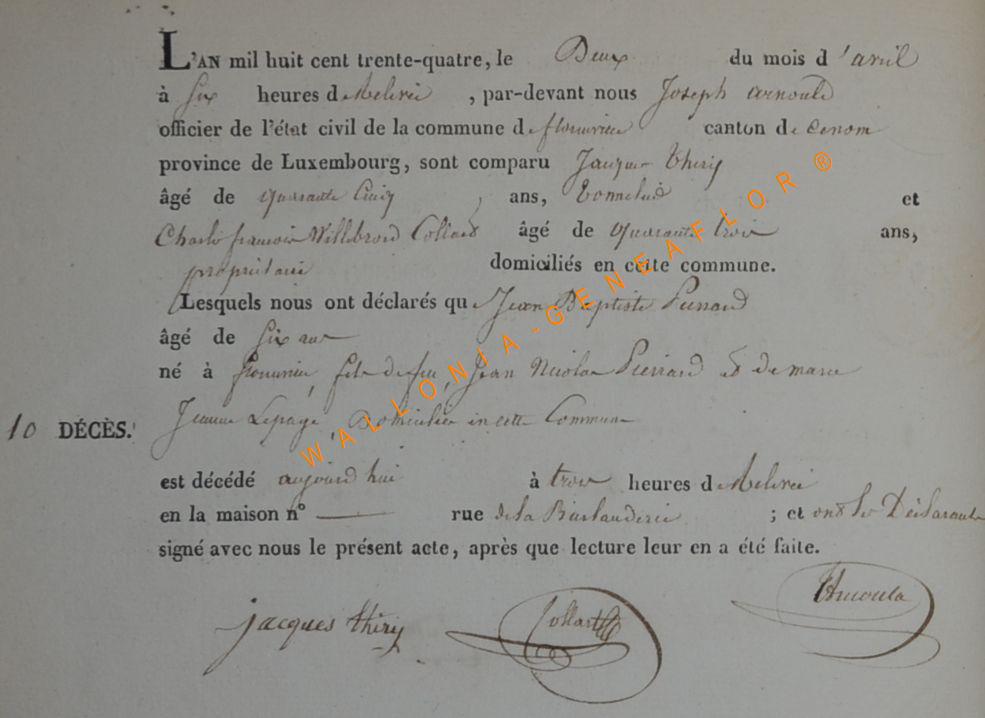 L'AN mil huit cent trente-quatre, le Deux du mois d'avril
à six heures de Relevée, par-devant nous Joseph arnould
officier de l'état civil de la commune de florenville canton de
province de Luxembourg, sont comparu Jacques thiry
âgé de quarante Cinq ans, et
Charles françois Willebrord Collard âgé de quarante trois ans,
propriétaire domiciliés en cette commune.
Lesquels nous ont déclarés que Jean Baptiste Pierrard
âgé de six ans
né à florenville, fils de feu, Jean Nicolas Pierrard et de marie
Jeanne Lepage, Domiciliée en cette Commune
10 DÉCÈS.
est décédé aujourd'hui à trois heures de Relevée
en la maison n° — rue de la ; et ont les Déclarants
signé avec nous le présent acte, après que lecture leur en a été faite.
jacques thiry Collard
WALLONIA-GENEAFLOR ®